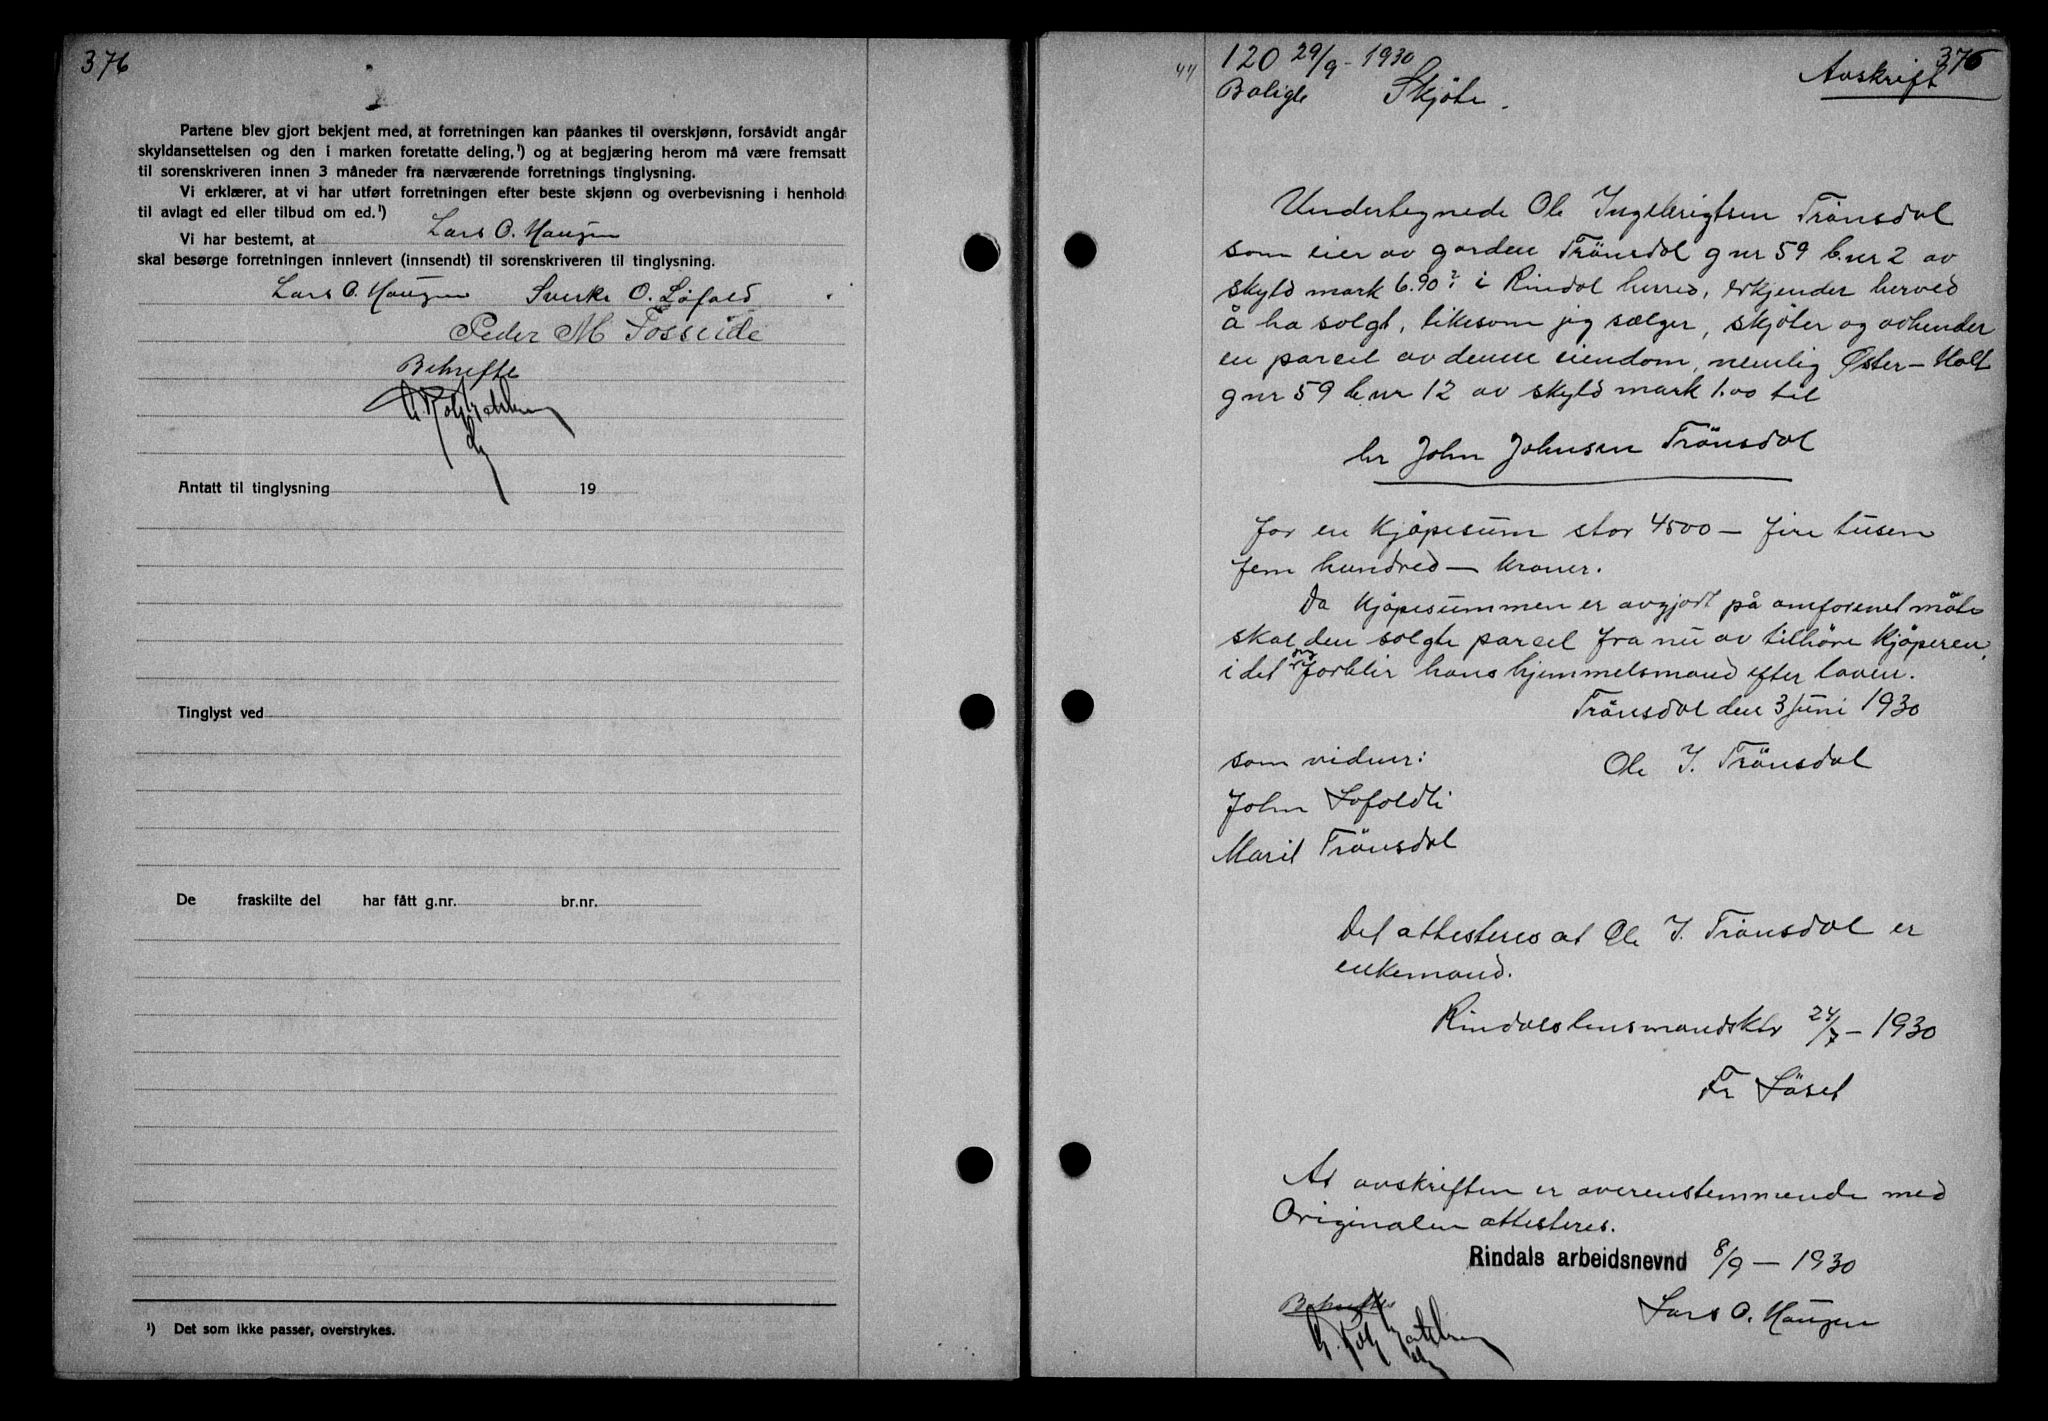 376
Partene blev gjort bekjent med, at forretningen kan påankes til overskjønn, forsåvidt angår
skyldansettelsen og den i marken foretatte deling,¹) og at begjæring herom må være fremsatt
til sorenskriveren innen 3 måneder fra nærværende forretnings tinglysning.
Vi erklærer, at vi har utført forretningen efter beste skjønn og overbevisning i henhold
til avlagt ed eller tilbud om ed.¹)
Vi har bestemt, at Lars O. Haugen
skal besørge forretningen innlevert (innsendt) til sorenskriveren til tinglysning.
Lars O. Haugen Sverke O. Løfald
Peder M Fosseide
Bekrefte
Antatt til tinglysning 19
Tinglyst ved
De fraskilte del har fått g.nr. br.nr.
¹) Det som ikke passer, overstrykes.
44 120 29/9 - 1930 Avskrift 376
Boligle Skjöte.
Undertegnede Ole Ingebrigtsen Trönsdal
som eier av garden Trönsdal g nr 59 b.nr 2 av
skyld mark 6.90 i Rindal herred, erkjender herved
å ha solgt, likesom jeg sælger, skjöter og avhender
en parcel av denne eiendom, nemlig Øster-Holt
gnr 59 b nr 12 av skyld mark 1.00 til
hr John Johnsen Trönsdal
for en Kjöpesum stor 4500 - fire tusen
fem hundred - kroner.
Da Kjöpesummen er avgjort på omforenet måte
skal den solgte parcel fra nu av tilhöre Kjöperen,
i det jeg forblir hans hjemmelsmand efter loven.
Trönsdal den 3 Juni 1930
som vidner: Ole I. Trönsdal
John Lofoldli
Marit Trönsdal
Det attesteres at Ole I. Trönsdal er
enkemand.
Rindal lensmandsktr 24/7 - 1930
Fr Löset
At avskriften er overensstemmende med
Originalen attesteres.
Rindals arbeidsnevnd 8/9 - 1930
Bekreftes Lars O. Haugen